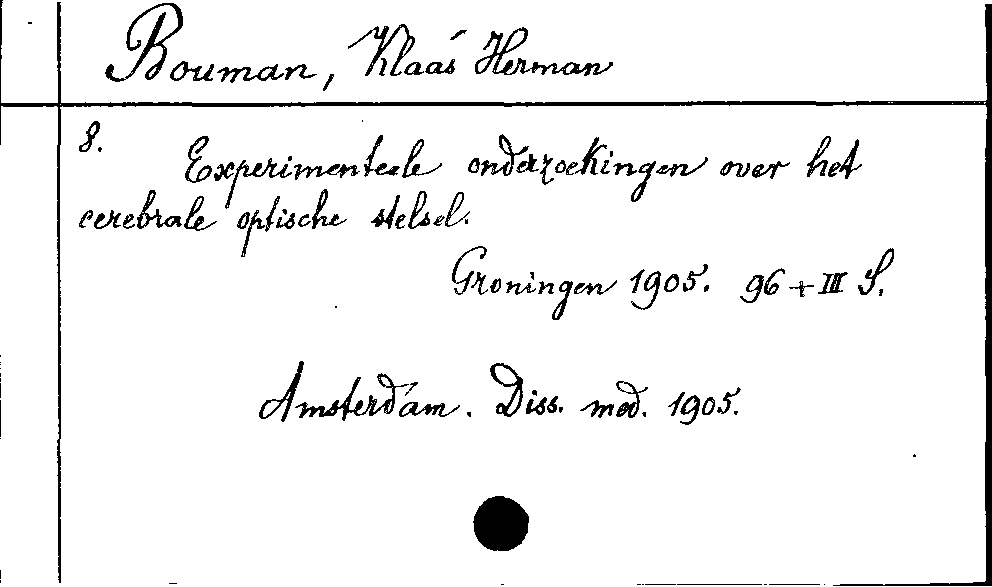 Bouman, Klaas Herman
8.
Experimenteele onderzoekingen over het
cerebrale optische stelsel.
Groningen 1905. 96 + III S.
Amsterdam. Diss. med. 1905.